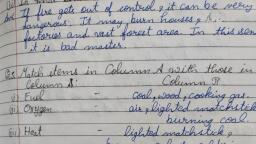 If fire gets out of control, it can be very
dangerous. It may burn houses,
factories and vast forest area. In this sen
it is bad master.
Match items in Column A with those in
Column B.
(i) Fuel - coal, wood, cooking gas.
(ii) Oxygen - air, lighted matchstick
burning coal
(iii) Heat - lighted matchstick,